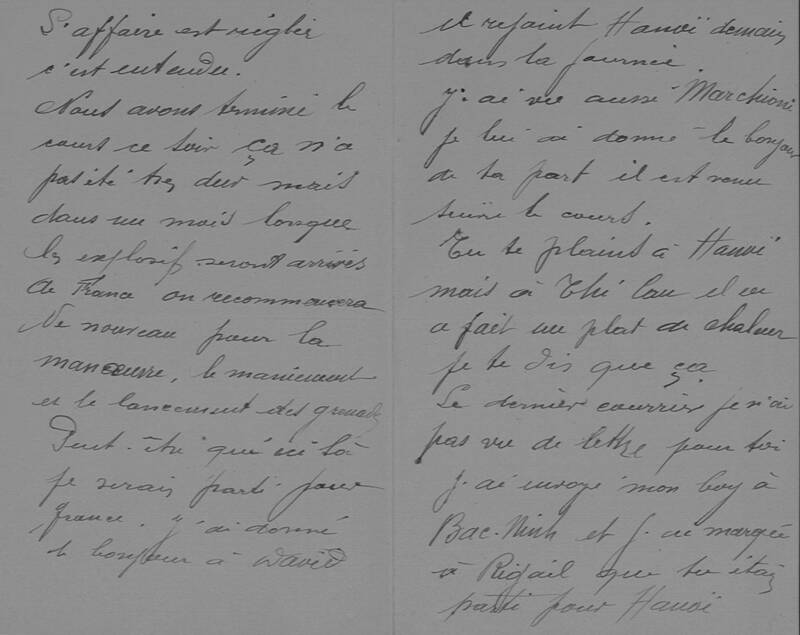 L'affaire est réglée
c'est entendu.
Nous avons terminé le
cours ce soir ça n'a
pas été très dur mais
dans un mois lorsque
les explosifs seront arrivés
de France on recommencera
de nouveau pour la
manœuvre, le maniement
et le lancement des grenades
Peut-être qu'ici là
je serais parti pour
france. j'ai donné
le bonjour à David
il rejoint Hanoï demain
dans la journée.
j'ai vu aussi Marchioni
je lui ai donné le bonjour
de ta part il est venu
suivre le cours.
Tu te plains à Hanoï
mais à Thi Cau il en
a fait un plat de chaleur
je te dis que ça
Le dernier courrier je n'ai
pas vu de lettre pour toi
j'ai envoyé mon boy à
Bac-Ninh et j'ai marqué
à Rigail que tu étais
parti pour Hanoï